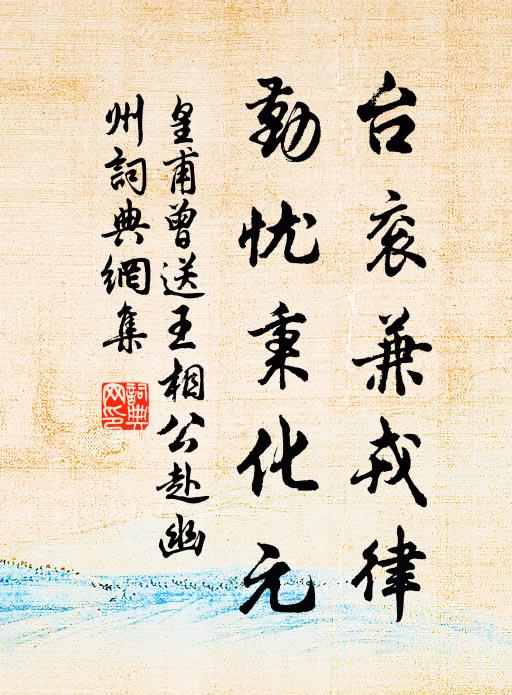 台衮兼戎律
勤忧秉化元
皇甫曾送王相公赴幽
州詞典網集
詞典網印